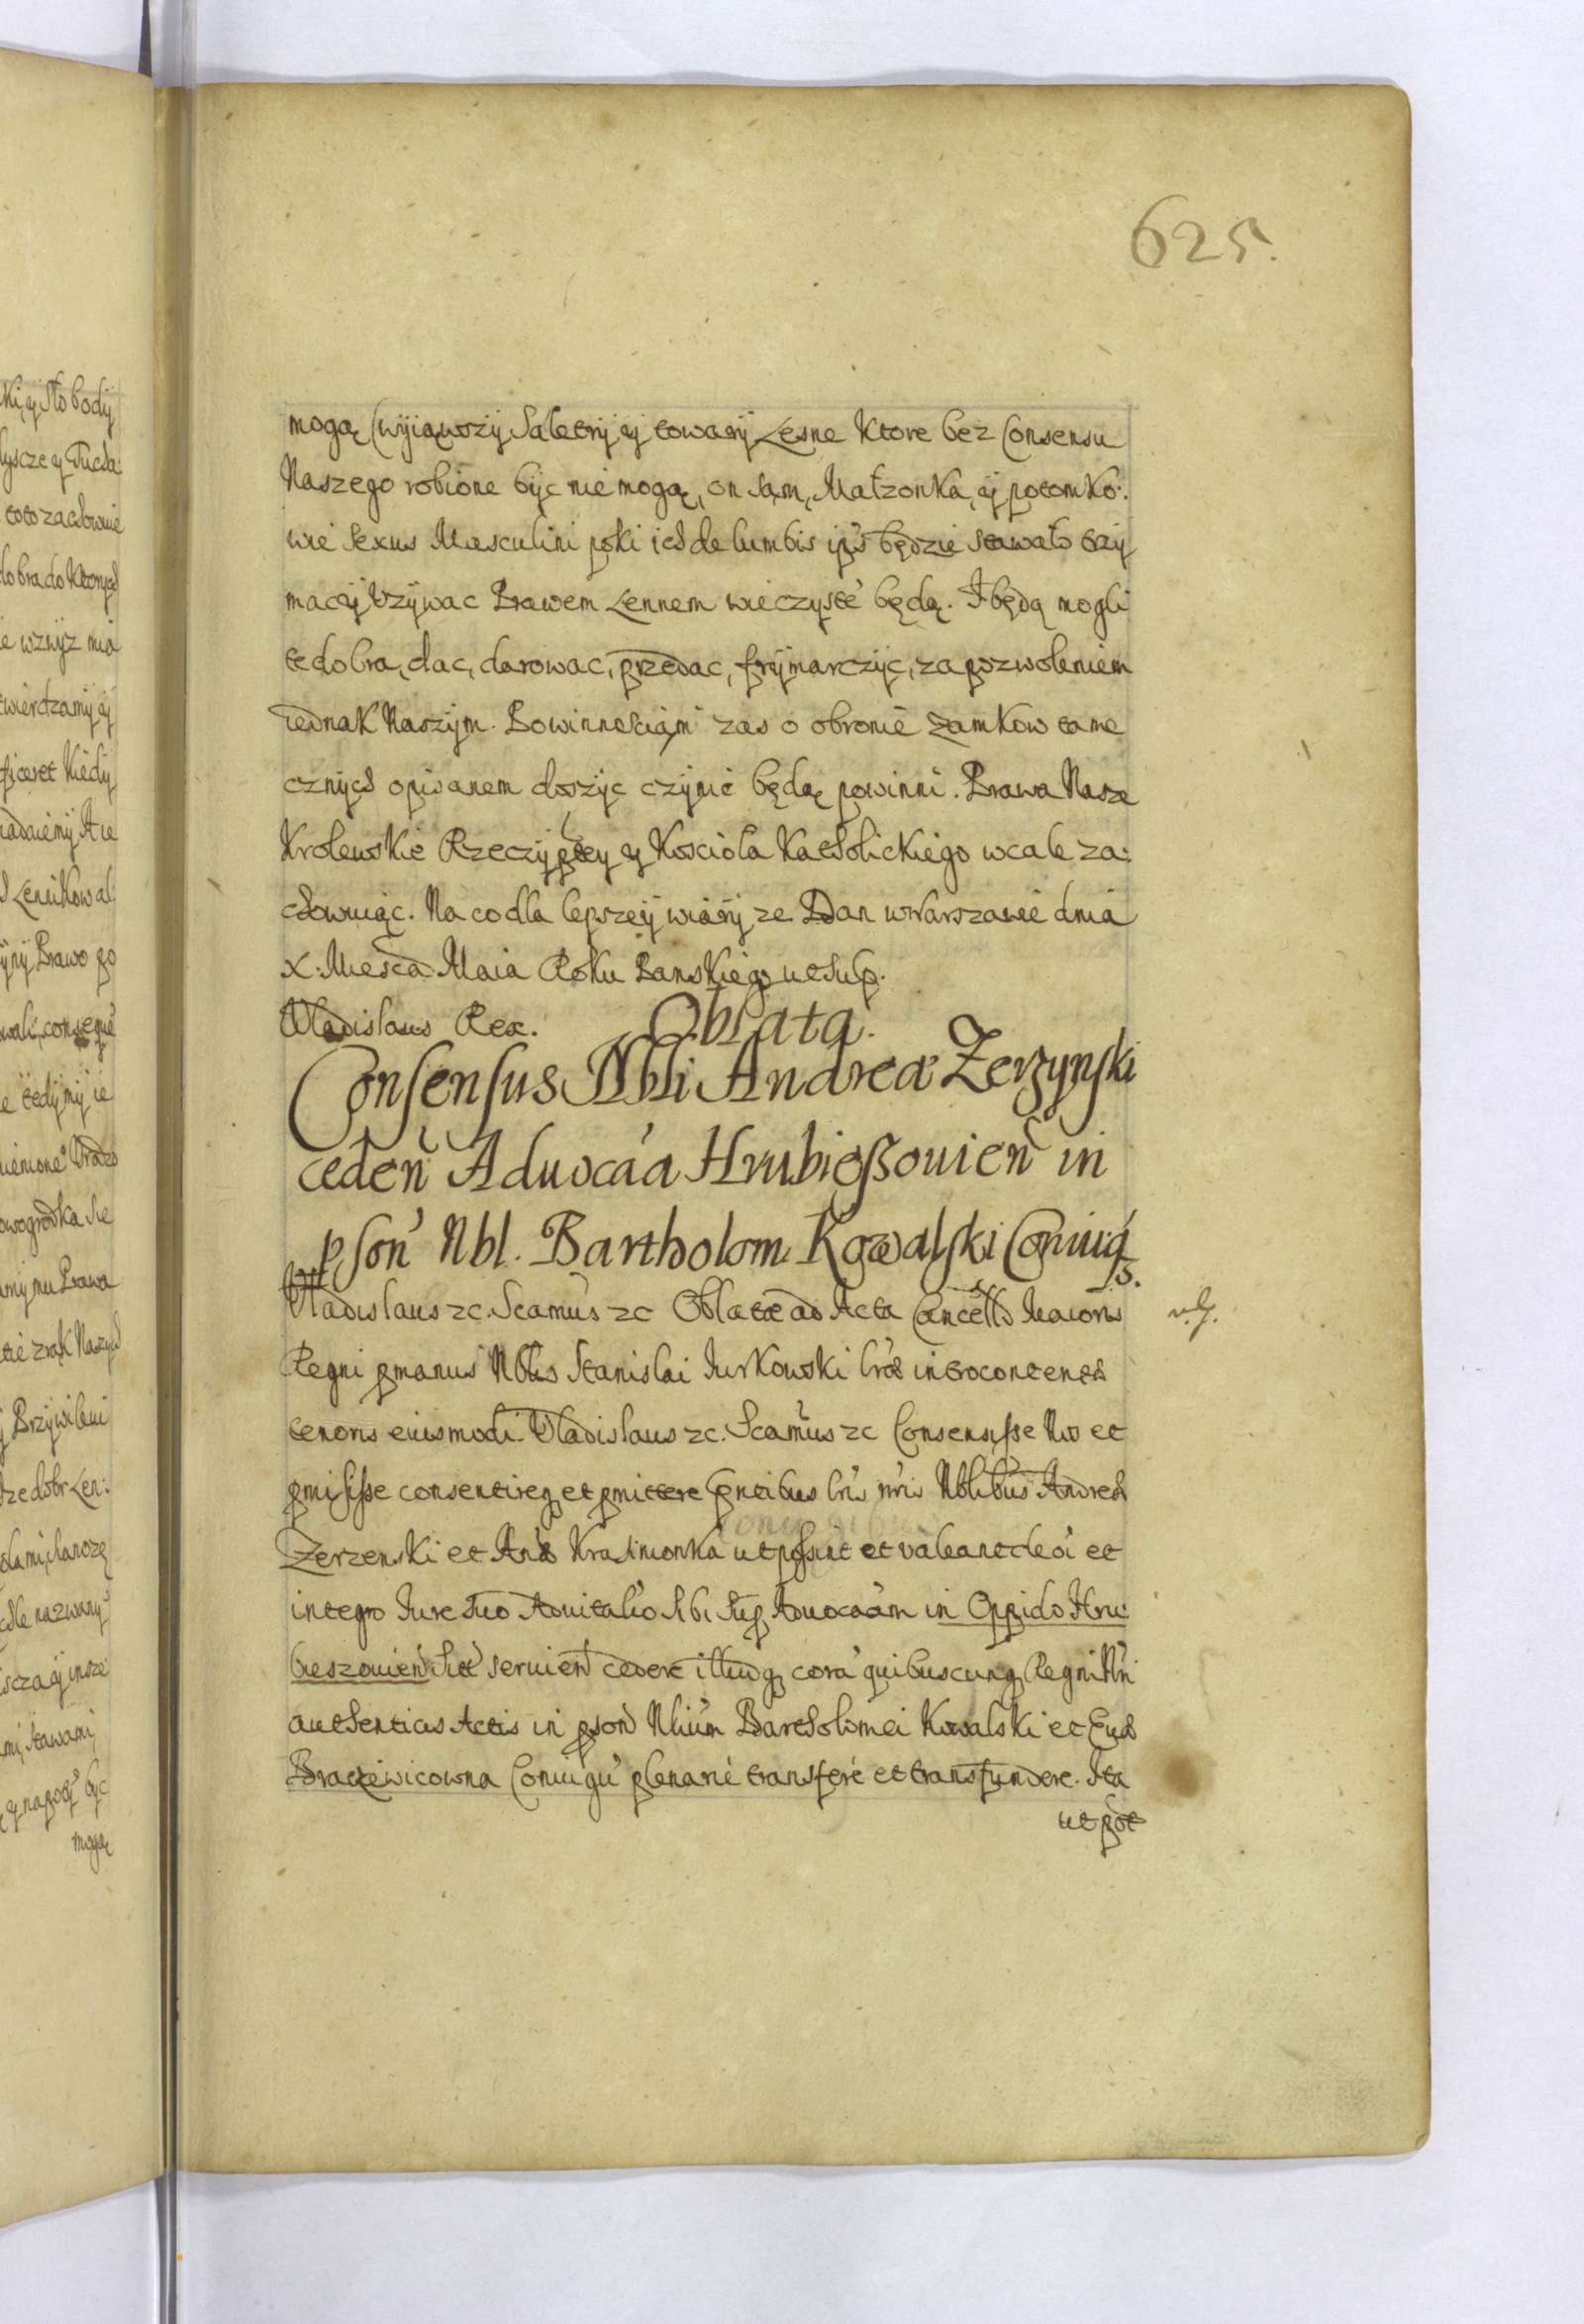 625.
mogą (wyiąwszy Saletry y towary Lesne Ktore bez Consensu
Naszego robione byc nie mogą, on sam, Małzonka, y potomko:
wie Sexus Masculini poki ich de lumbis ips będzie stawało trzy
mac y Vzywac Prawem Lennem wieczyste będą. I będą mogli
te dobra, dac, darowac, przedac, frymarczyc, za pozwoleniem
iednak Naszym. Powinnosciąm zas o obronie zamkow tame
cznych opisanem doszyc czynic będą powinni. Prawa Nasze
Krolewskie Rzeczyptey y Kosciola Katholickiego wcale za:
chowuiąc. Na co dla lepszey wiary ze Dan w Warszawie dnia
X. Mesca Maia Roku Panskiego ut Sup.
Vladislaus Rex. Oblata
Consensus Nbli Andreæ Zerzynski
ceden Aduocãa Hrubieſſouien in
pson Nbl. Bartholom. Kowalski Coniug
s.
Vladislaus zc. Scamus zc Oblatæ ad Acta Cancell Maioris
v. g.
Regni p manus Nblis Stanislai Jurkowski lras introcontentas
tenoris eiusmodi. Vladislaus zc. Scamus zc Consensisse Nos et
pmisisse consentireq et pmittere pntibus lris nris Nblibus Andreæ
Zerzenski et Annæ Krasmonka ut possint et valeant de oi et
integro Iure Suo Aduitalio sibi Sup Aduocãam in Oppido Hru:
bieszouien Sitã seruien cedere illudq corã quibuscunq Regni Nri
authenticis Actis in pson Nlium Bartholomei Kowalski et Euæ
Braczewicowna Coniugũ plenarie transfere et transfundere. Ita
ut pdt